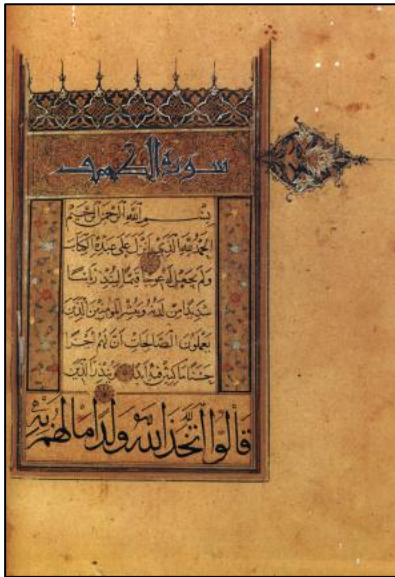 سورة الكهف
بِسْمِ اللَّهِ الرَّحْمَنِ الرَّحِيمِ
الْحَمْدُ لِلَّهِ الَّذِي أَنْزَلَ عَلَى عَبْدِهِ الْكِتَابَ
وَلَمْ يَجْعَلْ لَهُ عِوَجًا قَيِّمًا لِيُنْذِرَ بَأْسًا
شَدِيدًا مِنْ لَدُنْهُ وَيُبَشِّرَ الْمُؤْمِنِينَ الَّذِينَ
يَعْمَلُونَ الصَّالِحَاتِ أَنَّ لَهُمْ أَجْرًا
حَسَنًا مَاكِثِينَ فِيهِ أَبَدًا وَيُنْذِرَ الَّذِينَ
قَالُوا اتَّخَذَ اللَّهُ وَلَدًا مَا لَهُمْ بِهِ